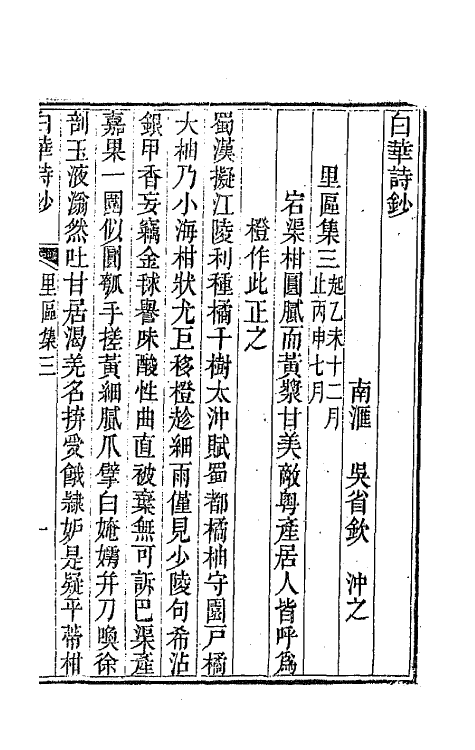 白華詩鈔
南滙　吳省欽　沖之
里區集三起乙未十二月止丙申七月
宕渠柑圓膩而黃漿甘美敵粵產居人皆呼爲
橙作此正之
蜀漢擬江陵利種橘千樹太沖賦蜀都橘柚守園戸橘
大柚乃小海柑狀尤巨移橙趁細雨僅見少陵句希沾
銀甲香妄竊金毬譽味酸性曲直被棄無可訴巴渠產
嘉果一圓似圓瓠手搓黃細膩爪擘白媕嫮幷刀喚徐
剖玉液滃然吐甘居渴羌名擠受餓隷妒是疑平蔕柑
白華詩鈔
里區集三
一